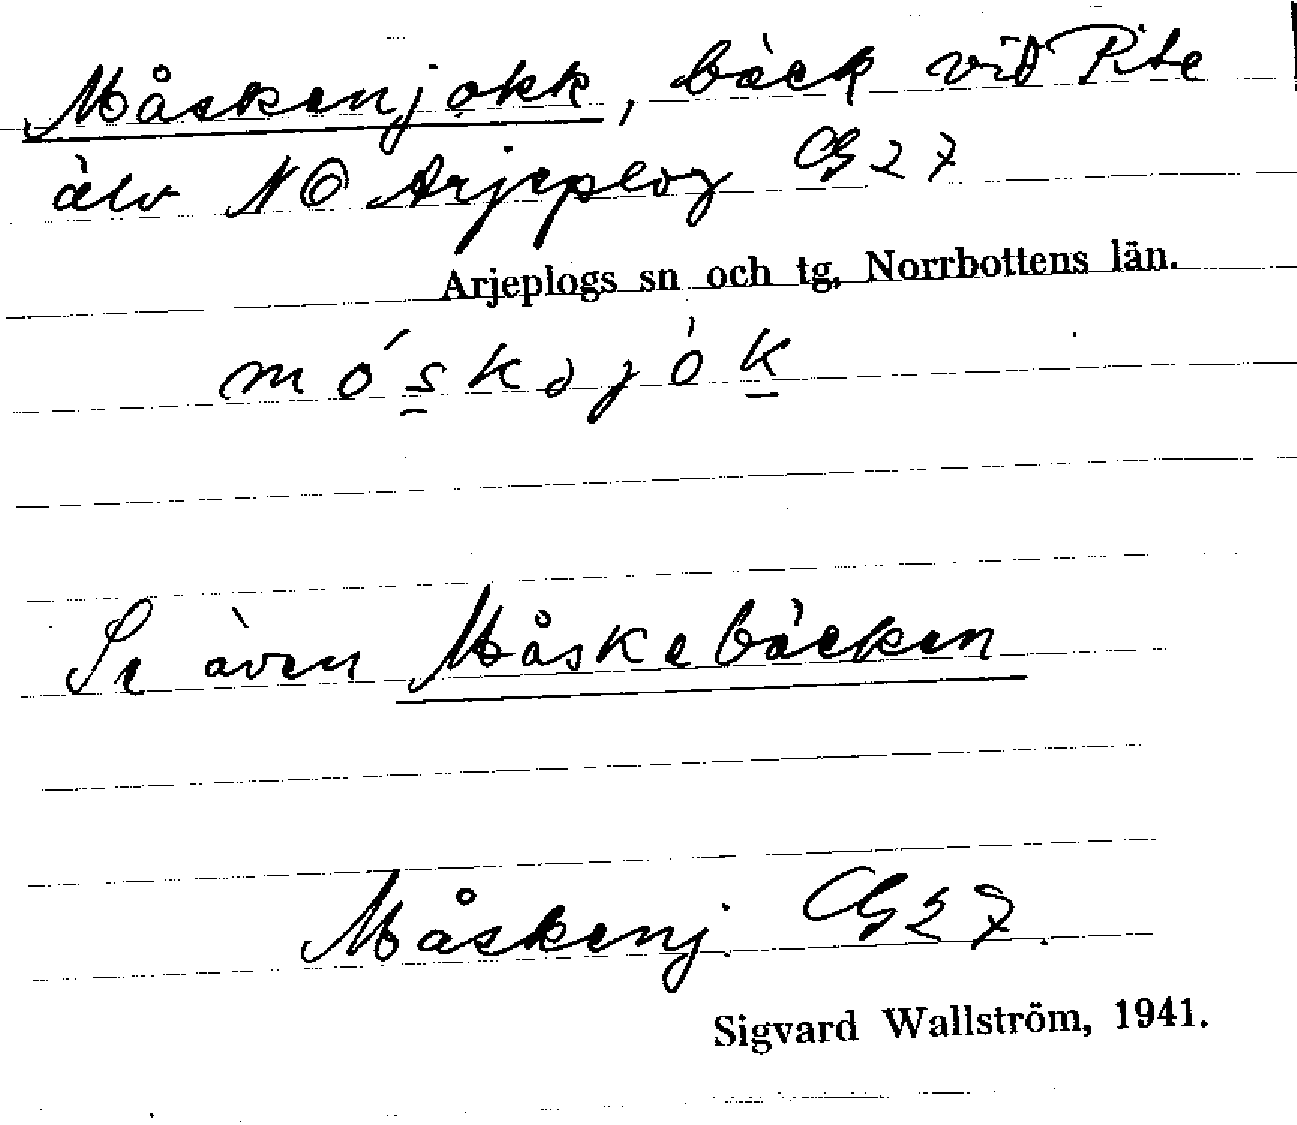 Måskenjokk, bäck vid Pite
älv NO Arjeplog G 27
Arjeplogs sn och tg, Norrbottens län.
móskəjòk
Se även Måskebäcken
Måskenj. G 27
Sigvard Wallström, 1941.